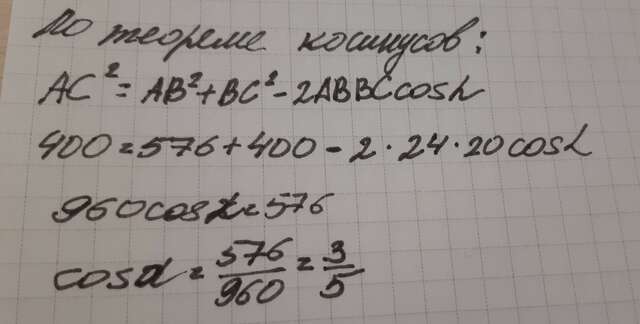 По теореме косинусов:
AC² = AB² + BC² - 2ABBCcosα
400 = 576 + 400 - 2 · 24 · 20cosα
960cosα = 576
cosα = 576/960 = 3/5